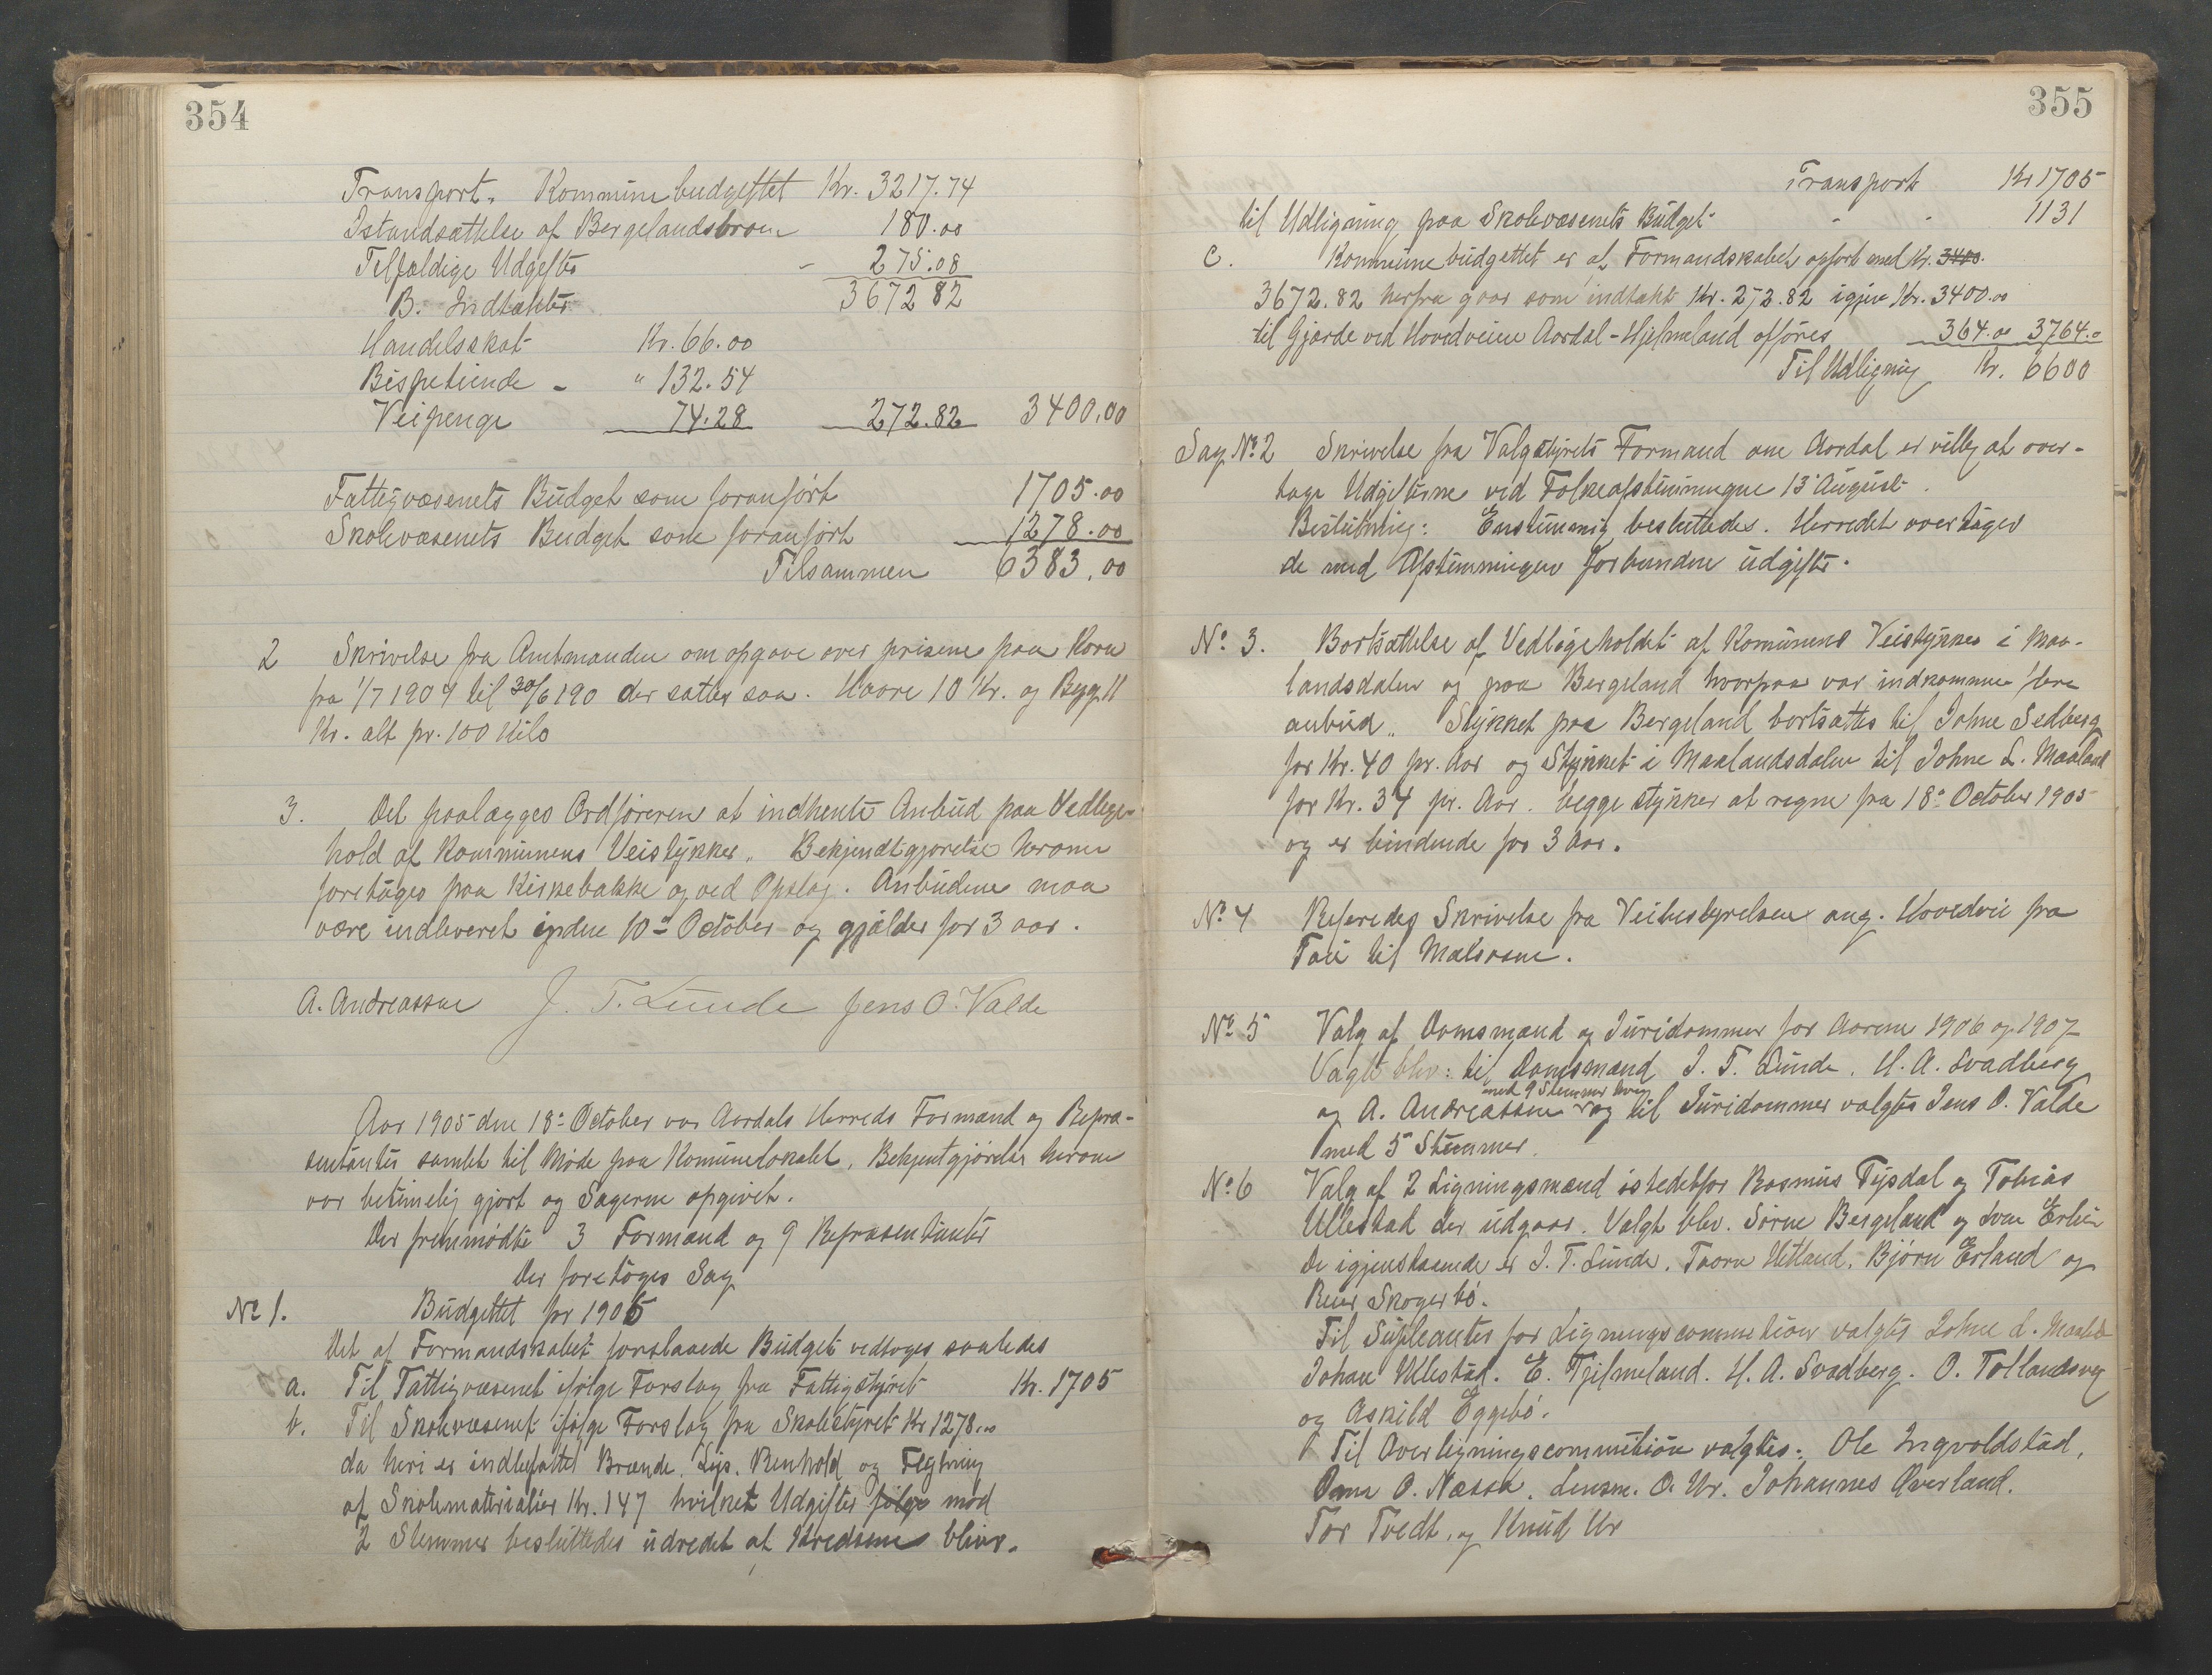 354
Transport. Kommunebudgettet Kr. 3217.74
Istandsættelse af Bergelandsbroen 180.00
Tilfældige Udgifter - 275.08
B. Indtækter 3672 82
Handelsskat Kr. 66.00
Bispetiende - " 132.54
Veipenge 74.28 272.82 3400.00
Fattigvæsenets Budget som foranført 1705.00
Skolevæsenets Budget som foranført 1278.00
Tilsammen 6383.00
2 Skrivelse fra Amtmanden om opgave over prisene paa Korn
fra 1/7 1904 til 30/6 190 der sættes saa. Havre 10 Kr. og Byg 11
Kr. alt pr. 100 Kilo
3. Det paalægges Ordføreren at indhente Anbud paa Vedlige-
hold af Kommunens Veistykker. Bekjendtgjørelse herom
foretages paa Kirkebakke og ved Opslag. Anbudene maa
være indleveret inden 10de October og gjælder for 3 aar.
A. Andreassen J. T. Lunde Jens O. Valde
Aar 1905 den 18de October var Aardals Herreds Formænd og Repræ-
sentanter samlet til Møde paa Komunelokalet. Bekjentgjørelse herom
var betimelig gjort og Sagerne opgivet.
Der fremmødte 3 Formænd og 9 Repræsentanter
Der foretoges Sag
No 1. Budgettet for 1906
Det af Formandskabet forslaaede Budget vedtoges saaledes
a. Til Fattigvæsenet ifølge Forslag fra Fattigstyret Kr. 1705
b. Til Skolevæsenet ifølge Forslag fra Skolestyret Kr 1278.00
da heri er indbefattet Brænde. Lys. Renhold og Flytning
af Skolematerialier Kr. 147 hvilket Udgifter følge mod
2 Stemmer besluttedes udredet af Kredsene bliver.
355
Transport Kr 1705
til Udligning paa Skolevæsenets Budget - - 1131
C. Kommunebudgettet er af Formandskabet opført med Kr. 3400.
3672.82 herfra gaar som indtækt Kr. 272.82 igjen Kr. 3400.00
til Gjærde ved Hovedveien Aardal-Hjelmeland opføres 364.00 3764.0
Til Udligning Kr. 6600
Sag No 2 Skrivelse fra Valgstyrets Formand om Aardal er villig at over-
tage Udgifterne ved Folkeafstemningen 13 August.
Beslutning: Enstemmig besluttedes. Herredet overtager
de med Afstemningen forbundne udgifter.
No. 3. Bortsættelse af Vedligeholdet af Komunens Veistykker i Maa-
landsdalen og paa Bergeland hvorpaa var indkommen flere
anbud. Stykket paa Bergeland bortsattes til Johne Sedberg
for Kr. 40 pr. Aar og Stykket i Maalandsdalen til Johne L. Maaland
for Kr. 34 pr. Aar. begge stykker at regne fra 18de October 1905
og er bindende for 3 Aar.
No 4 Referedes Skrivelse fra Veibestyrelsen ang. Hovedvei fra
Tau til
No 5 Valg af Domsmænd og Juridommer for Aarene 1906 og 1907
Valgt blev: til Domsmænd J. T. Lunde. H. A. Svadberg
med 9 Stemmer hver
og A. Andreassen og til Juridommer valgtes Jens O. Valde
med 5 Stemmer.
No 6 Valg af 2 Ligningsmænd istedetfor Rasmus Tysdal og Tobias
Ullestad der udgaar. Valgt blev. Sørne Bergeland og Sven
De igjenstaaende er J. T. Lunde. Taorn Hetland. Bjørn Erland og
Reier Skogerbø.
Til Supleanter for Ligningscommetionen valgtes Johne L. Maaland
Johan Ullestad. E. Fjelmeland. H. A. Svadberg. O. Tøtlandsveg
og Askild Eggebø.
Til Overligningscommetionen valgtes: Ole Ingvoldstad.
O. Næssa. Lensm. O. Ur. Johannes Øverland.
Tor Tvedt. og Knud Ur